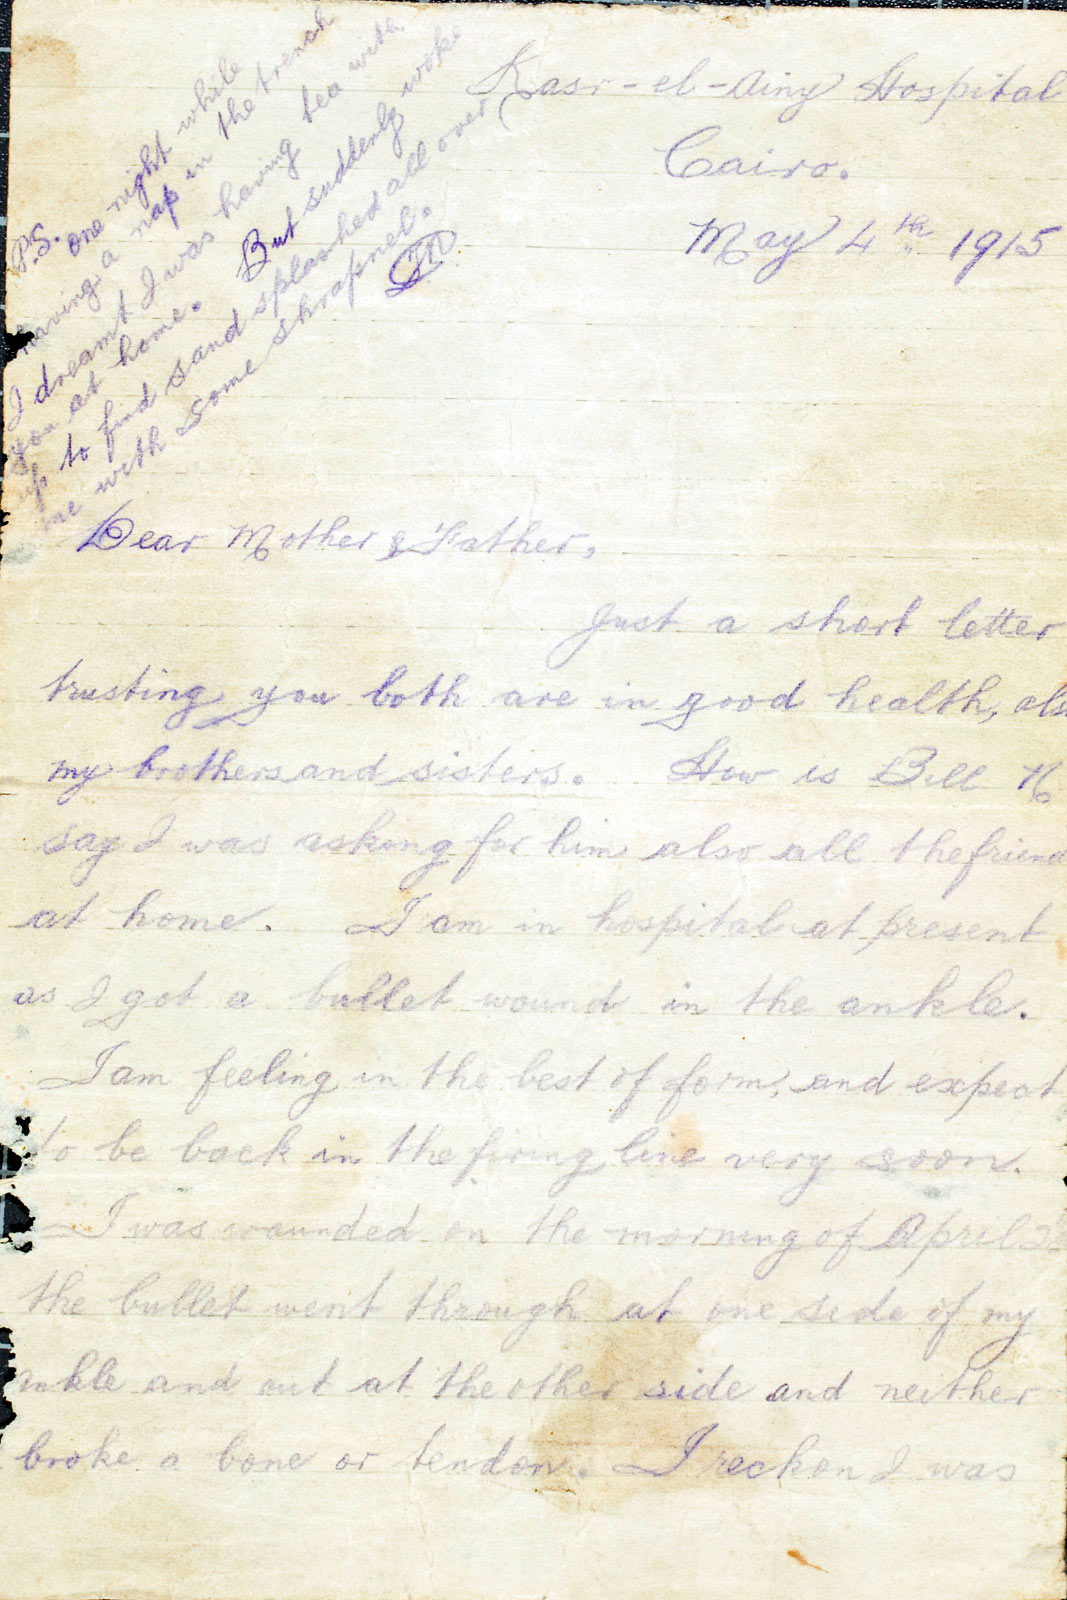 Kasr-el-Ainy Hospital
Cairo.
May 4th 1915
P.S. one night while
having a nap in the trench
I dreamt I was having tea with
you at home. But suddenly woke
up to find sand splashed all over
me with some shrapnel.
Dear Mother & Father,
Just a short letter
trusting you both are in good health, also
my brothers and sisters. How is Bill N
say I was asking for him also all the friend
at home. I am in hospital at present
as I got a bullet wound in the ankle.
I am feeling in the best of form, and expect
to be back in the firing line very soon.
I was wounded on the morning of April
the bullet went through at one side of my
ankle and out at the other side and neither
broke a bone or tendon. I reckon I was